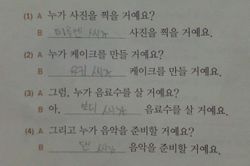 (1) A 누가 사진을 찍을 거예요?
B 마이클 씨가 사진을 찍을 거예요.
(2) A 누가 케이크를 만들 거예요?
B 유키 씨가 케이크를 만들 거예요.
(3) A 그럼, 누가 음료수를 살 거예요?
B 아. 씨가 음료수를 살 거예요.
(4) A 그리고 누가 음악을 준비할 거예요?
B 씨가 음악을 준비할 거예요.